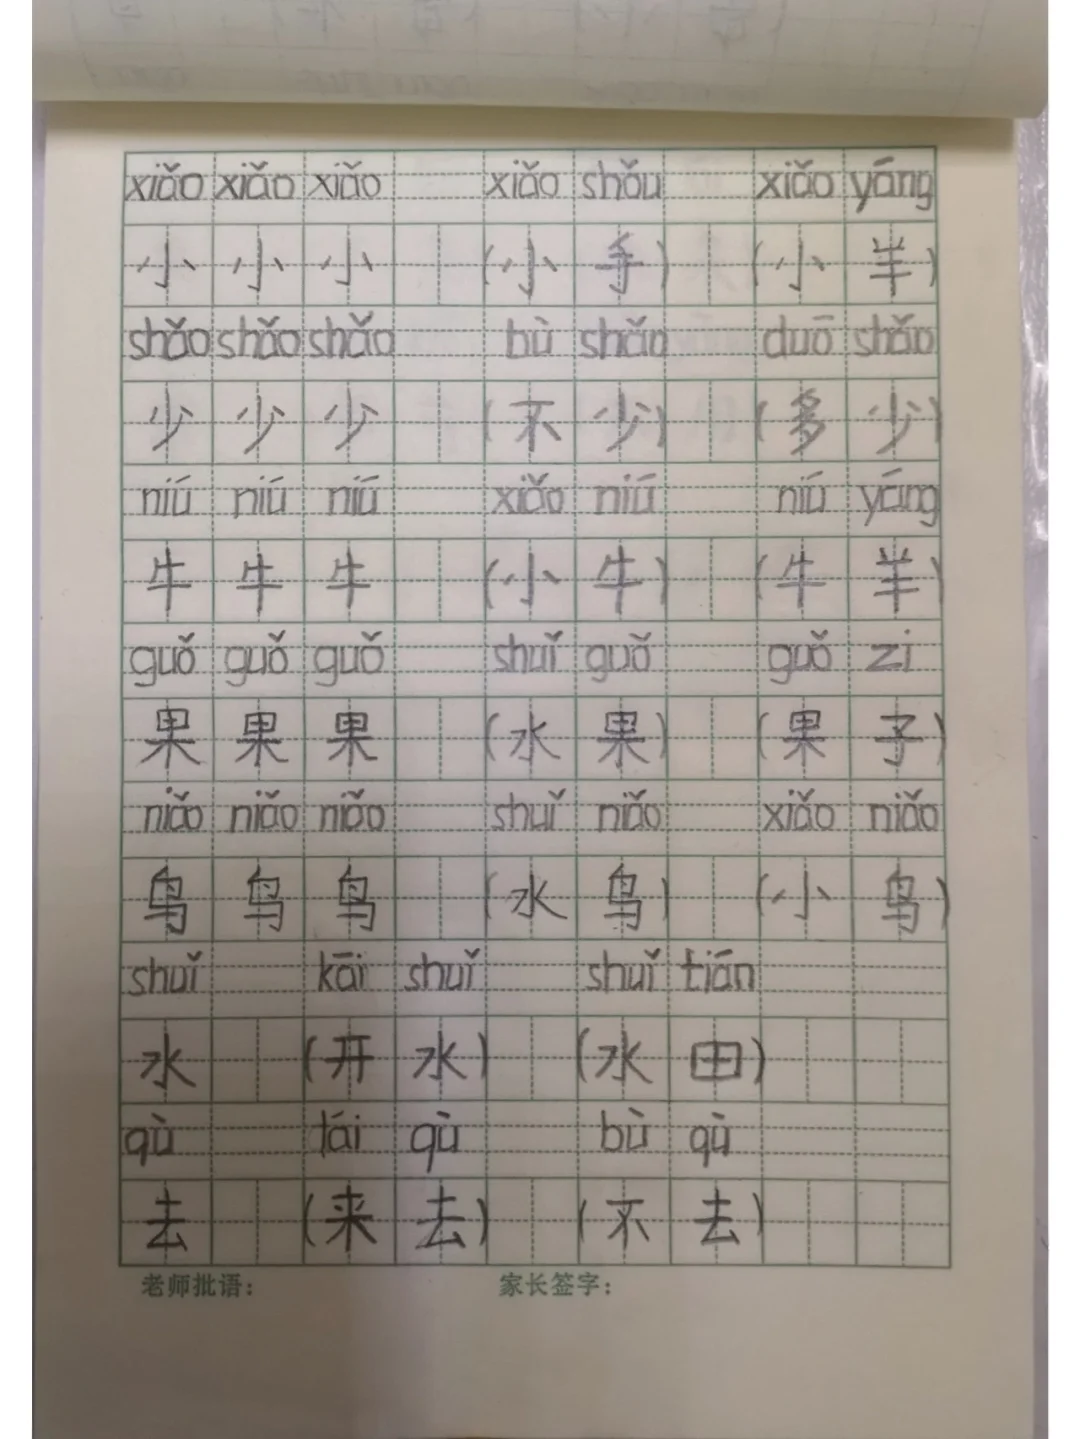 xiǎo xiǎo xiǎo xiǎo shǒu xiǎo yáng
小 小 小 (小 手) (小 羊)
shǎo shǎo shǎo bù shǎo duō shǎo
少 少 少 (不 少) (多 少)
niú niú niú xiǎo niú niú yáng
牛 牛 牛 (小 牛) (牛 羊)
guǒ guǒ guǒ shuǐ guǒ guǒ zi
果 果 果 (水 果) (果 子)
niǎo niǎo niǎo shuǐ niǎo xiǎo niǎo
鸟 鸟 鸟 (水 鸟) (小 鸟)
shuǐ kāi shuǐ shuǐ tián
水 (开 水) (水 田)
qù lái qù bù qù
去 (来 去) (不 去)
老师批语： 家长签字：